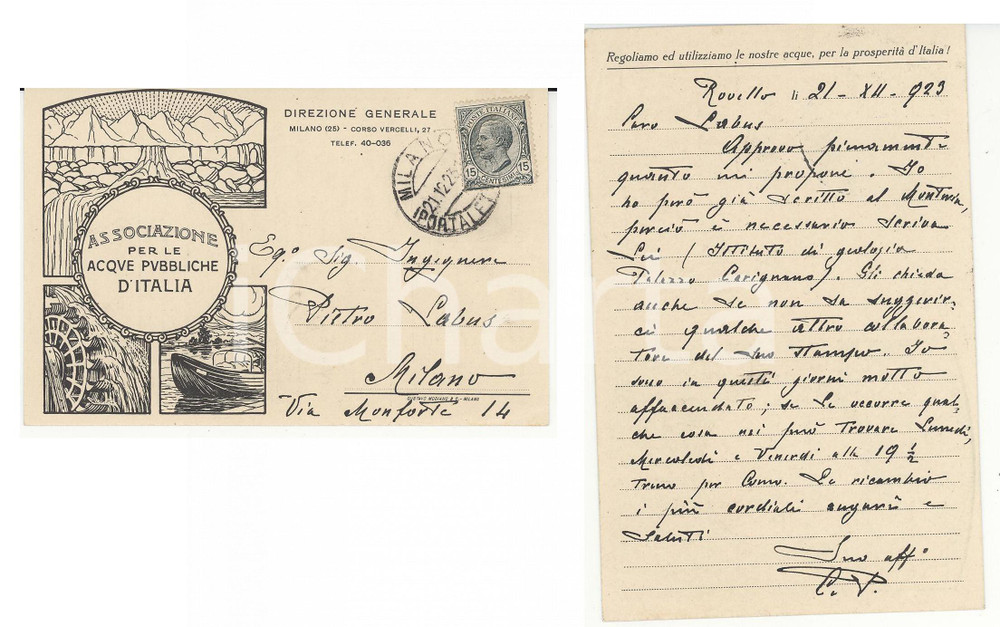 DIREZIONE GENERALE
MILANO (25) - CORSO VERCELLI, 27
TELEF. 40-036
POSTE ITALIANE
15 CENTESIMI 15
MILANO
21.12.23
(PORTALET
ASSOCIAZIONE
PER LE
ACQVE PVBBLICHE
D'ITALIA
Eg. Sig. Ingegnere
Pietro Labus
Milano
GUSTAVO MODIANO & C. - MILANO
Via Monforte 14
iCharta
Regoliamo ed utilizziamo le nostre acque, per la prosperità d'Italia!
Rovello li 21 - XII - 923
Caro Labus
Approvo pienamente
quanto mi propone. Io
ho però già scritto al
perciò è necessario scriva
Lei (Istituto di geologia
Palazzo Carignano). Gli chieda
anche se non sa suggerir-
ci qualche altro collabora-
tore del suo stampo. Io
sono in questi giorni molto
affaccendato; se Le occorre qual-
che cosa mi può trovare Lunedì,
Mercoledì e Venerdì alle 19 ½
treno per Como. Le ricambio
i più cordiali auguri e
saluti
Suo aff°
C. P.